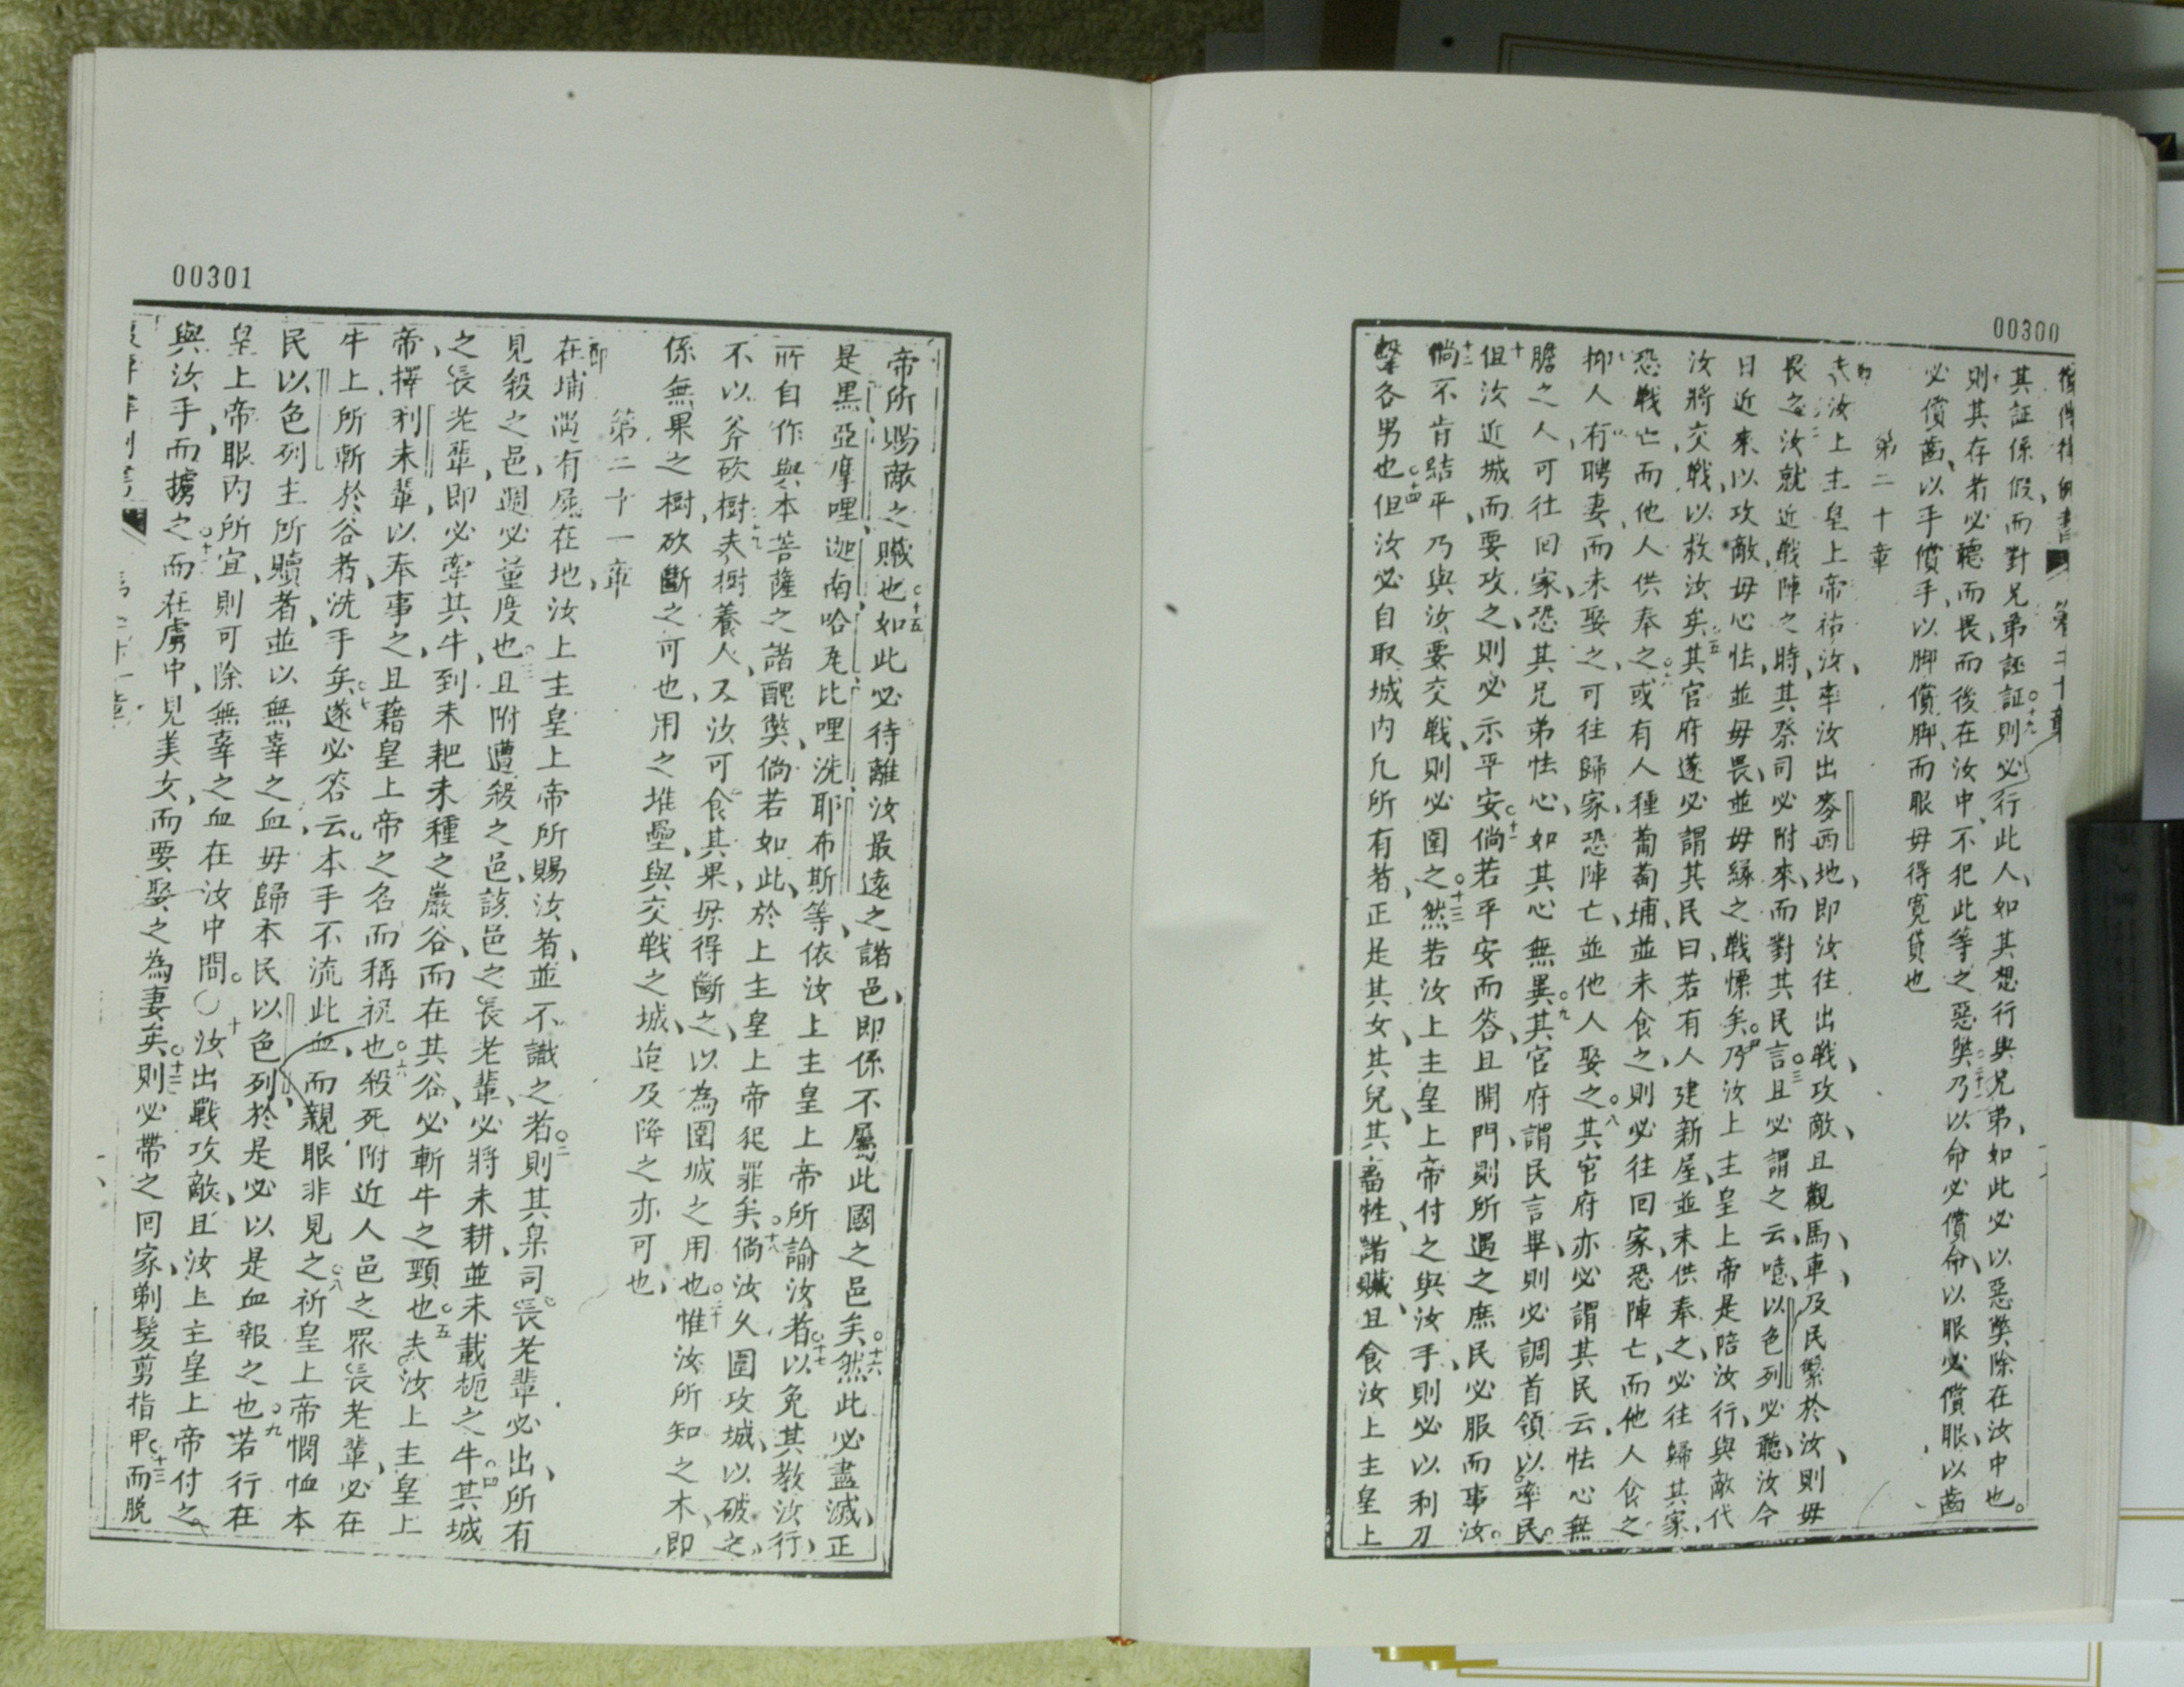 00300
第二十章
其証係假、而對兄弟誣証則必行此人、如其想行與兄弟、如此必以惡獘除在汝中也。
則其存者必聽而畏、而後在汝中、不犯此等之惡獘乃以命必償命、以眼必償眼、以齒
必償齒、以手償手、以脚償脚、而眼毋得寛貸也
第二十章
夫汝上主皇上帝率汝出麥西地、即汝往出戰、攻敵、且觀馬、車、及民緊於汝、則毋
畏之汝就近戰陣之時、其祭司必附來、而對其民言且必謂之云、噫以色列必聽、汝今
日近來、以攻敵毋心怯並毋畏、並毋緣之戰慄矣乃汝上主皇上帝是陪汝行、與敵代
汝將交戰、以救汝矣其官府遂必謂其民曰若有人建新屋並未供奉之、必往歸其家、
恐戰亡而他人供奉之或有人種葡萄埔、並未食之、則必往回家、恐陣亡、而他人食之
抑人有聘妻、而未娶之、可往歸家、恐陣亡、並他人娶之其官府亦必謂其民云、怯心無
膽之人可往回家、恐其兄弟怯心、如其心無異其官府謂民言畢、則必調首領以率民。
但汝近城、而要攻之、則必示平安倘若平安而答、且開門、則所遇之庶民必服而事汝。
倘不肯結平、乃與汝要交戰、則必圍之然若汝上主皇上帝付之與汝手、則必以利刀
擊各男也但汝必自取城內凢所有者、正是其女、其兒、其畜牲、諸贓、且食汝上主皇上
00301
帝所賜敵之贓也如此必待離汝最遠之諸邑、即係不屬此國之邑矣然此必盡滅、正
是黑、亞摩哩、迦南哈、比哩洗耶布斯等、依汝上主皇上帝所諭汝者以免其教汝行、
所自作與本菩薩之諸醜獘、倘若如此、於上主皇上帝犯罪矣倘汝久圍攻城、以破之、
不以斧砍樹、夫樹養人、又汝可食其果、毋得斷之、以為圍城之用也惟汝所知之木、即
係無果之樹、砍斷之可也、用之堆壘、與交戰之城、迨及降之亦可也、
第二十一章
在埔有屍在地、汝上主皇上帝所賜汝者、並不識之者則其臬司長老輩必出、所有
見殺之邑、週必量度也且附遭殺之邑、該邑之長老輩、必將未耕、並未載柂之牛其城
之長老輩、即必牽其牛、到未耙未種之巖谷、而在其谷、必斬牛之頸也夫汝上主皇上
帝、擇利未輩、以奉事之、且藉皇上帝之名而稱祝也殺死附近人邑之眾長老輩、必在
牛上所斬於谷者、洗手矣遂必答云、本手不流此血、而親眼非見之祈皇上帝憫恤本
民以色列主所贖者、並以無辜之血毋歸本民以色列、於是必以是血報之也若行在
皇上帝眼內所宜、則可除無辜之血在汝中間。〇汝出戰攻敵、且汝上主皇上帝付之
與汝手、而擄之而在虜中、見美女、而要娶之為妻矣則必帶之回家、剃髮剪指甲而脫